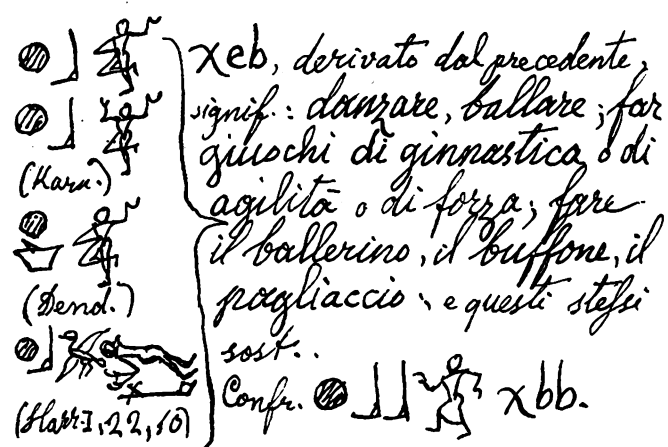 (Karn.)
(Dend.)
(Harr. I, 22, 10)
χeb, derivato dal precedente,
signif.: danzare, ballare; far
giuochi di ginnastica o di
agilità o di forza; fare
il ballerino, il buffone, il
pagliaccio; e questi steſsi
sost..
Confr. χbb.